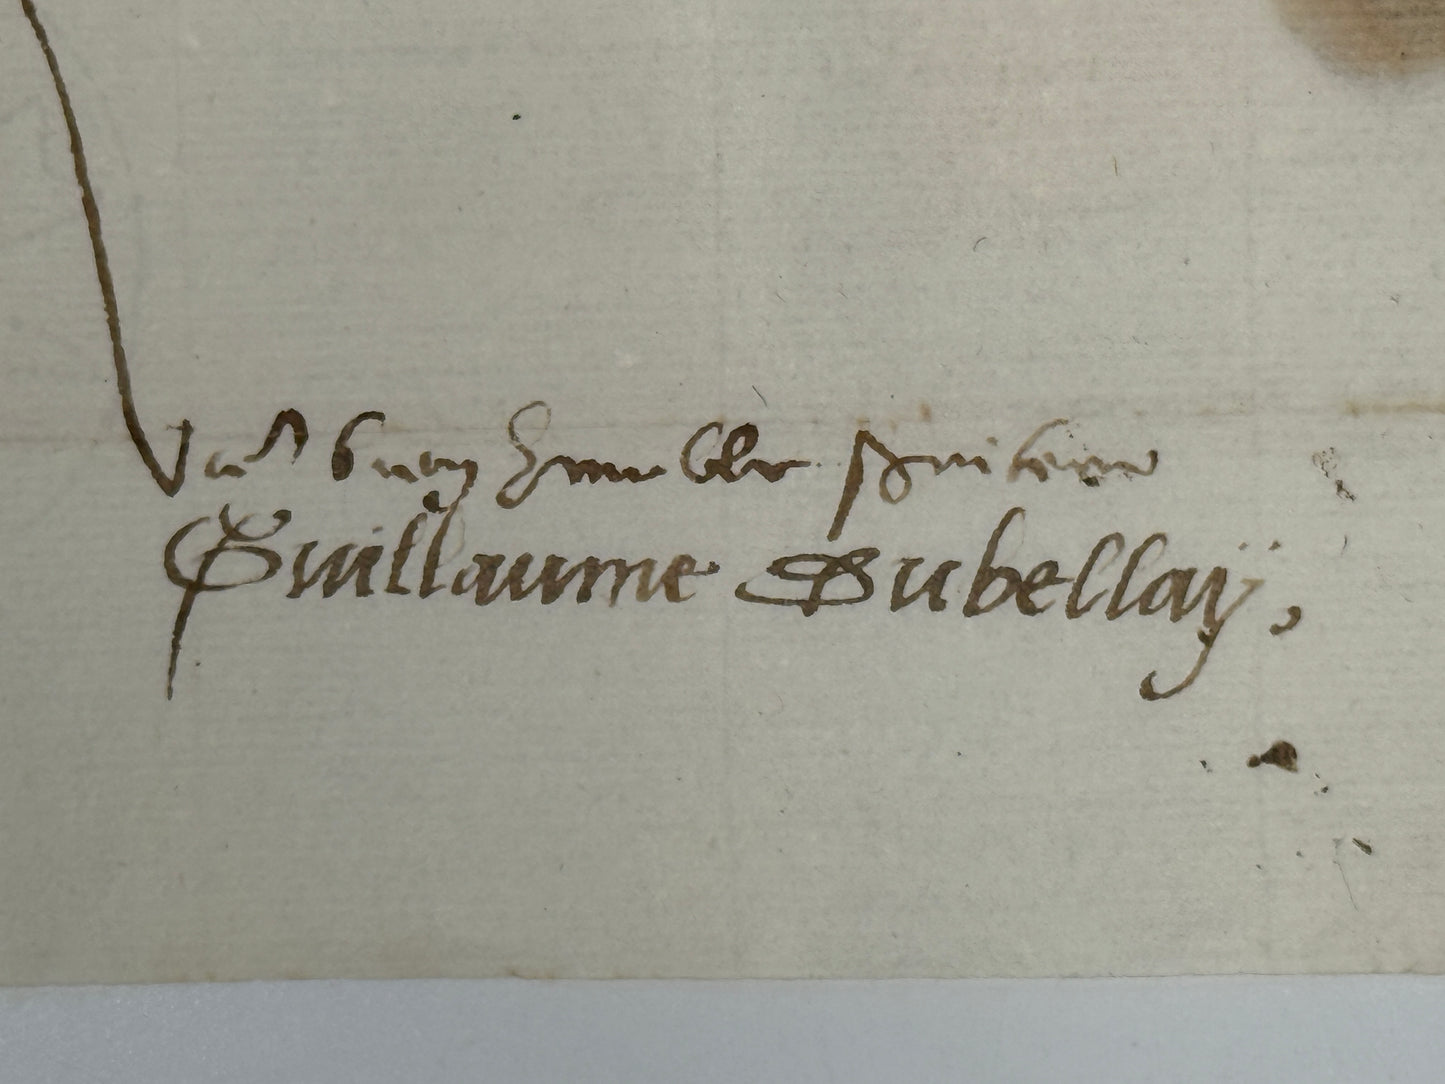 Vr̃e bien humble serviteur
Guillaume Dubellaÿ,